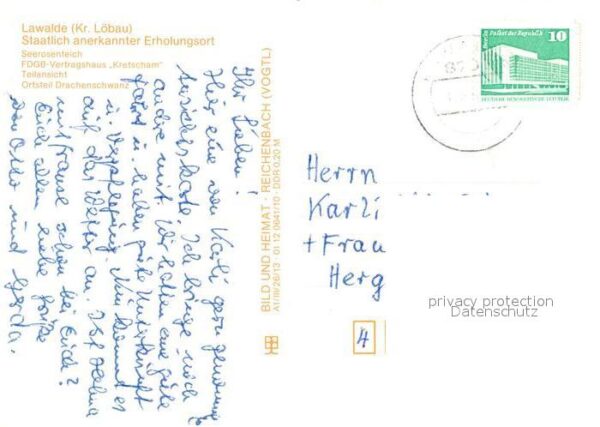 Lawalde (Kr. Löbau)
Staatlich anerkannter Erholungsort
Seerosenteich
FDGB-Vertragshaus „Kretscham"
Teilansicht
Ortsteil Drachenschwanz
Ihr Lieben!
Hier eine von Karli gern gewünschte
Ansichtskarte. Ich bringe noch
andre mit. Wir hatten eine gute
Fahrt u. haben gute Unterkunft
u. Verpflegung. Nun kommt es
auf das Wetter an. Ist Helma
mit schon bei Euch?
Euch allen liebe Grüße
von Otto und Gerda.
BILD UND HEIMAT · REICHENBACH (VOGTL)
A1/III/26/13 01 12 0641/10 DDR 0,20 M
Berlin, Palast der Republik
10
DEUTSCHE DEMOKRATISCHE REPUBLIK
Herrn
Karli
+ Frau
Herg
4
privacy protection
Datenschutz